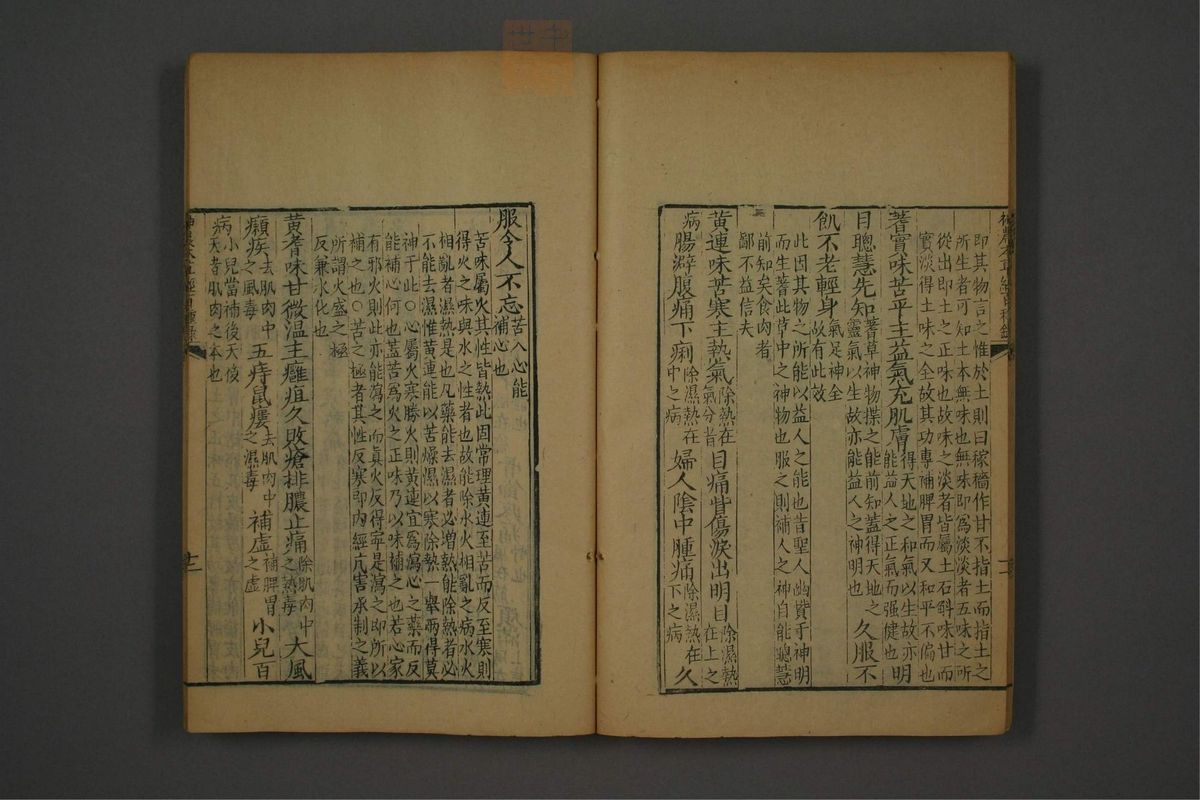 即其物言之惟於土則曰稼穡作甘不指土而指土之
所生者可知土本無味也無味即爲淡淡者五味之所
從出即土之正味也故味之淡者皆屬土石斛味甘而
實淡得土味之全故其功專補脾胃而又和平不偏也
蓍實味苦平主益氣充肌膚得天地之和氣以生故亦能益人之正氣而强健也明
目聰慧先知蓍草神物揲之能前知蓋得天地之靈氣以生故亦能益人之神明也久服不
飢不老輕身氣足神全故有此效
此因其物之所能以益人之能也昔聖人幽贊于神明
而生蓍此草中之神物也服之則補人之神自能聰慧
前知矣食肉者
鄙不益信夫
黃連味苦寒主熱氣除熱在氣分者目痛眥傷淚出明目除濕熱在上之
病腸澼腹痛下痢除濕熱在中之病婦人陰中腫痛除濕熱在下之病久
服令人不忘苦入心能補心也
苦味屬火其性皆熱此固常理黃連至苦而反至寒則
得火之味與水之性者也故能除水火相亂之病水火
相亂者濕熱是也凡藥能去濕者必增熱能除熱者必
不能去濕惟黃連能以苦燥濕以寒除熱一舉兩得莫
神于此○心屬火寒勝火則黃連宜爲瀉心之藥而反
能補心何也蓋苦爲火之正味乃以味補之也若心家
有邪火則此亦能瀉之而眞火反得寧是瀉之即所以
補之也○苦之極者其性反寒即內經亢害承制之義
所謂火盛之極
反兼水化也
黃耆味甘微溫主癰疽久敗瘡排膿止痛除肌肉中之熱毒大風
癩疾去肌肉中之風毒五痔鼠瘻去肌肉中之濕毒補虛補脾胃之虛小兒百
病小兒當補後天後天者肌肉之本也